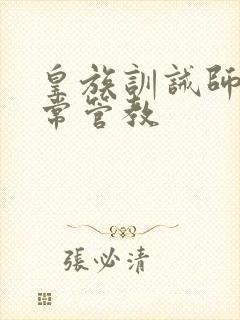 皇族訓誡師
常管教
張必清